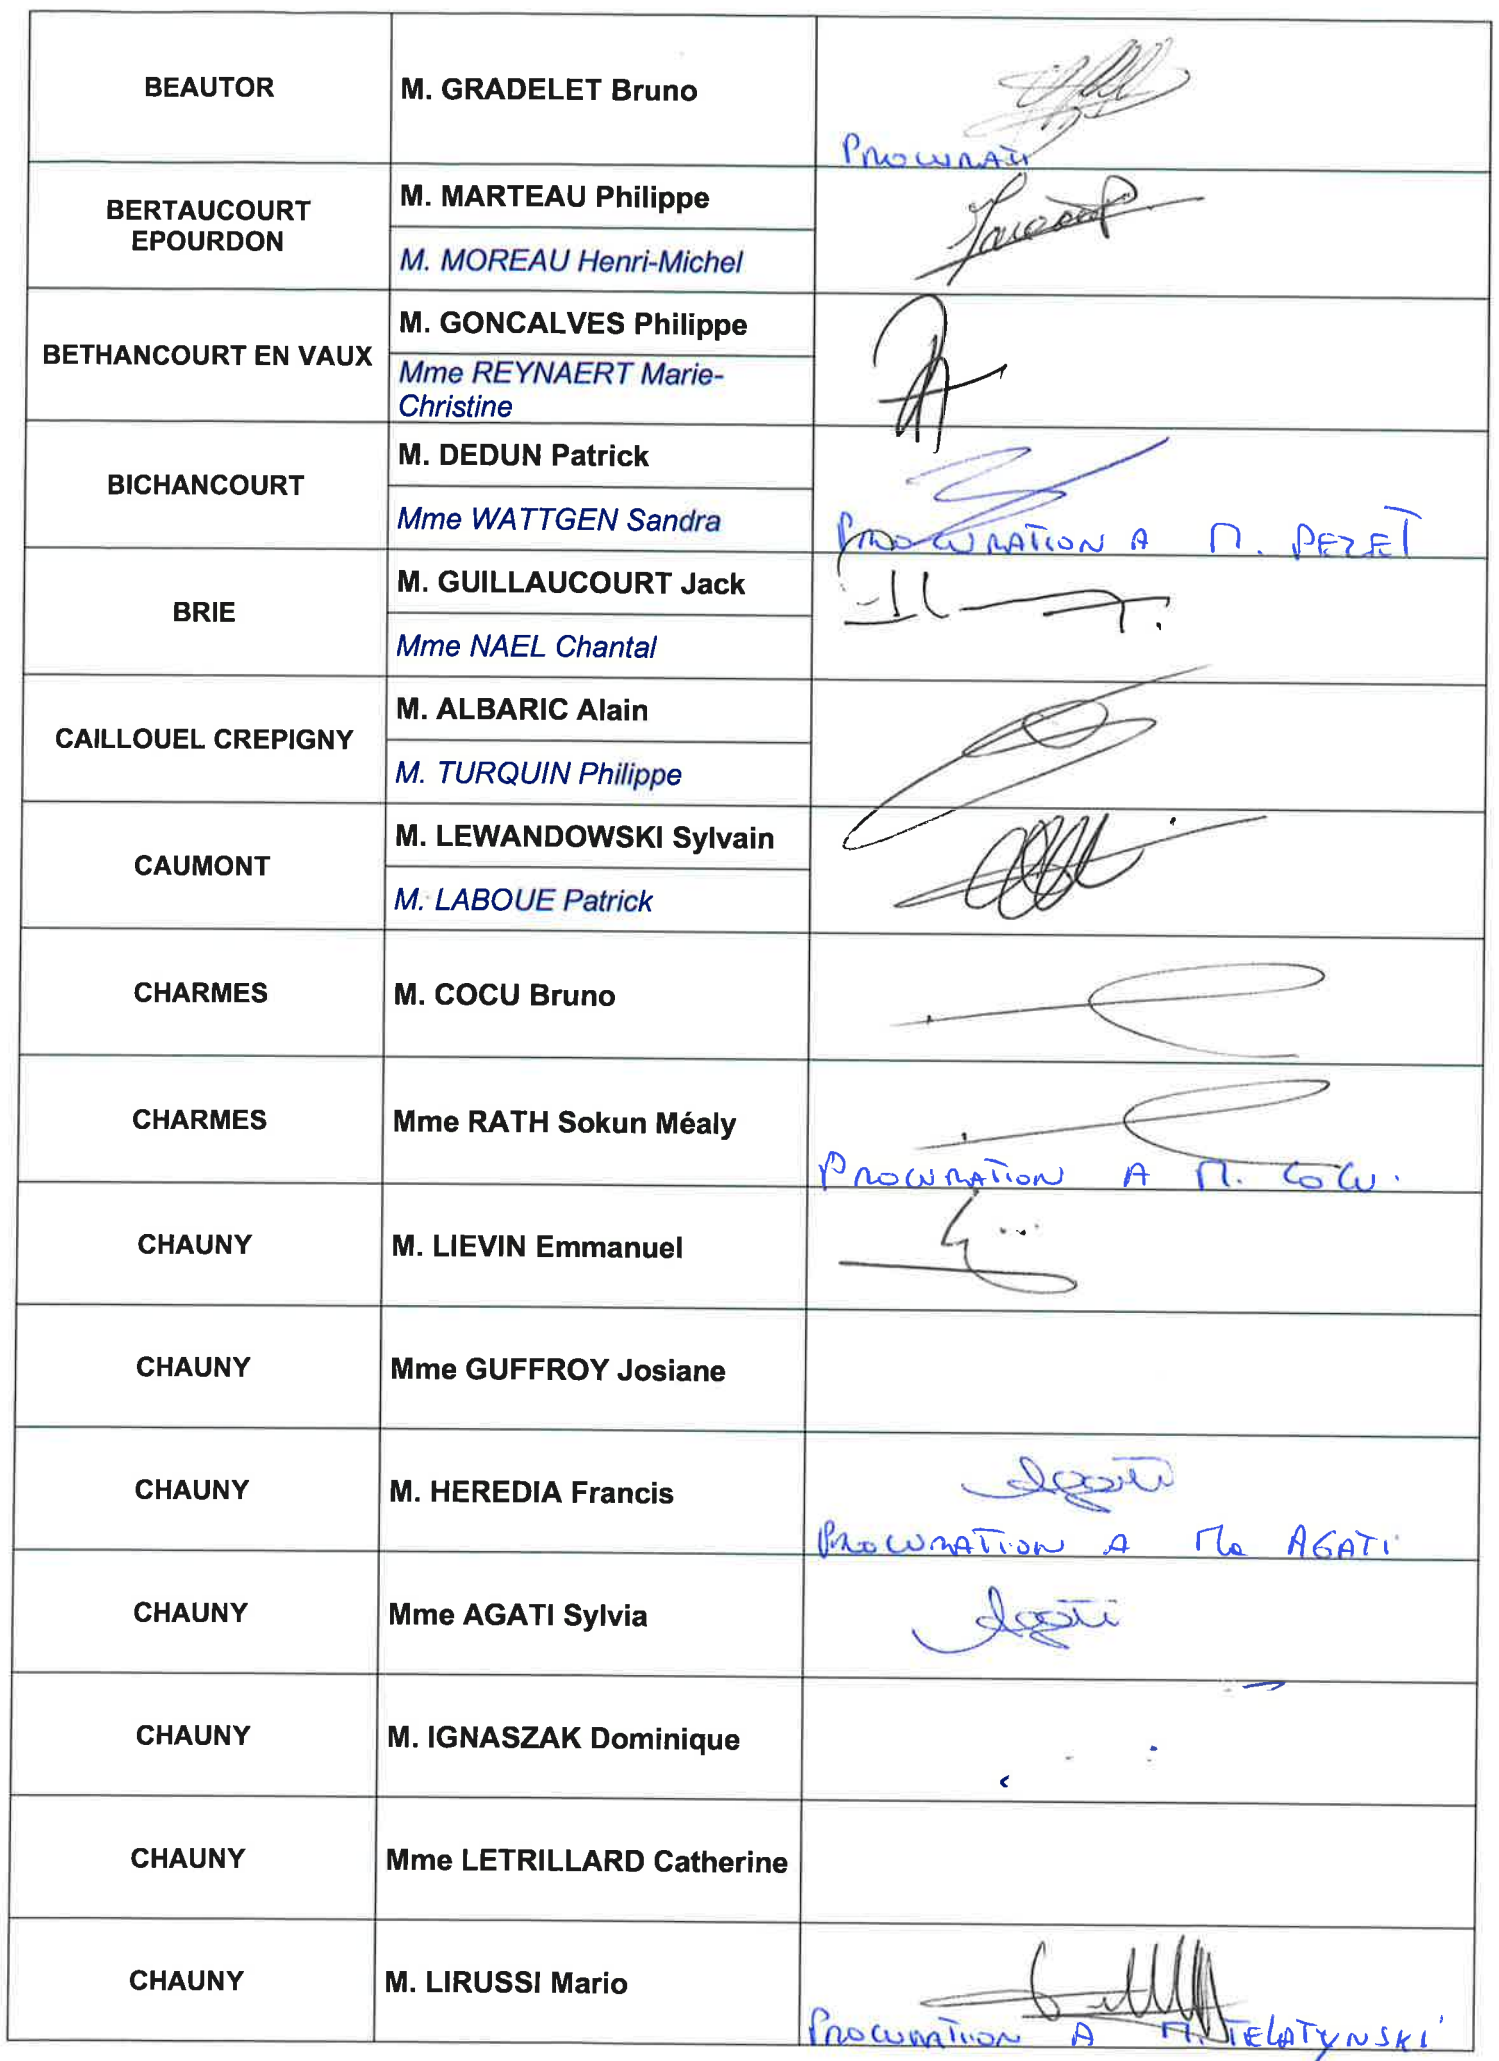 BEAUTOR
M. GRADELET Bruno
PROCURATI
BERTAUCOURT
EPOURDON
M. MARTEAU Philippe
M. MOREAU Henri-Michel
BETHANCOURT EN VAUX
M. GONCALVES Philippe
Mme REYNAERT Marie-
Christine
BICHANCOURT
M. DEDUN Patrick
Mme WATTGEN Sandra
PROCURATION A M. PEZET
BRIE
M. GUILLAUCOURT Jack
Mme NAEL Chantal
CAILLOUEL CREPIGNY
M. ALBARIC Alain
M. TURQUIN Philippe
CAUMONT
M. LEWANDOWSKI Sylvain
M. LABOUE Patrick
CHARMES
M. COCU Bruno
CHARMES
Mme RATH Sokun Méaly
PROCURATION A M. COCU.
CHAUNY
M. LIEVIN Emmanuel
CHAUNY
Mme GUFFROY Josiane
CHAUNY
M. HEREDIA Francis
Agati
PROCURATION A Me AGATI
CHAUNY
Mme AGATI Sylvia
Agati
CHAUNY
M. IGNASZAK Dominique
CHAUNY
Mme LETRILLARD Catherine
CHAUNY
M. LIRUSSI Mario
PROCURATION A M. TELATYNSKI